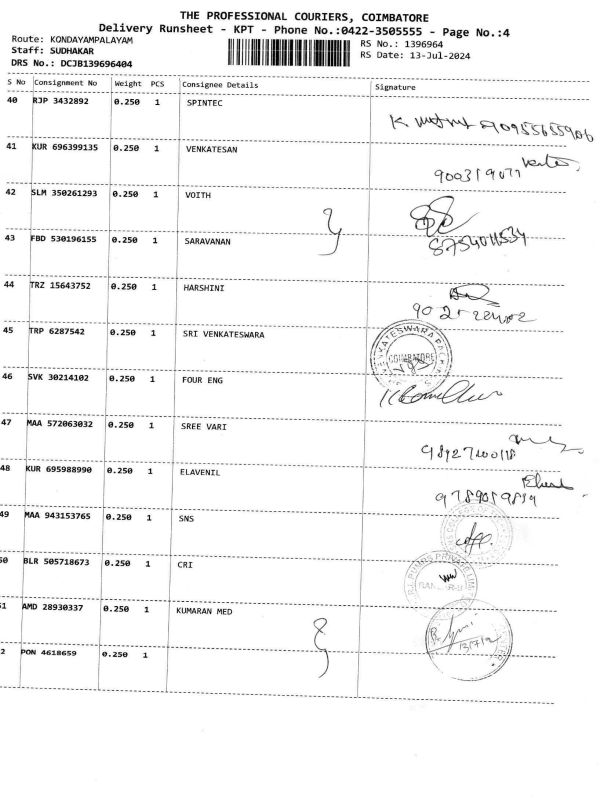 THE PROFESSIONAL COURIERS, COIMBATORE
Delivery Runsheet - KPT - Phone No.:0422-3505555 - Page No.:4
Route: KONDAYAMPALAYAM
Staff: SUDHAKAR
DRS No.: DCJB139696404
RS No.: 1396964
RS Date: 13-Jul-2024
S No Consignment No Weight PCS Consignee Details Signature
40 RJP 3432892 0.250 1 SPINTEC
41 KUR 696399135 0.250 1 VENKATESAN
42 SLM 350261293 0.250 1 VOITH
43 FBD 530196155 0.250 1 SARAVANAN
8754011534
44 TRZ 15643752 0.250 1 HARSHINI
45 TRP 6287542 0.250 1 SRI VENKATESWARA
COIMBATORE
46 SVK 30214102 0.250 1 FOUR ENG
47 MAA 572063032 0.250 1 SREE VARI
48 KUR 695988990 0.250 1 ELAVENIL
49 MAA 943153765 0.250 1 SNS
50 BLR 505718673 0.250 1 CRI
51 AMD 28930337 0.250 1 KUMARAN MED
2 PON 4618659 0.250 1